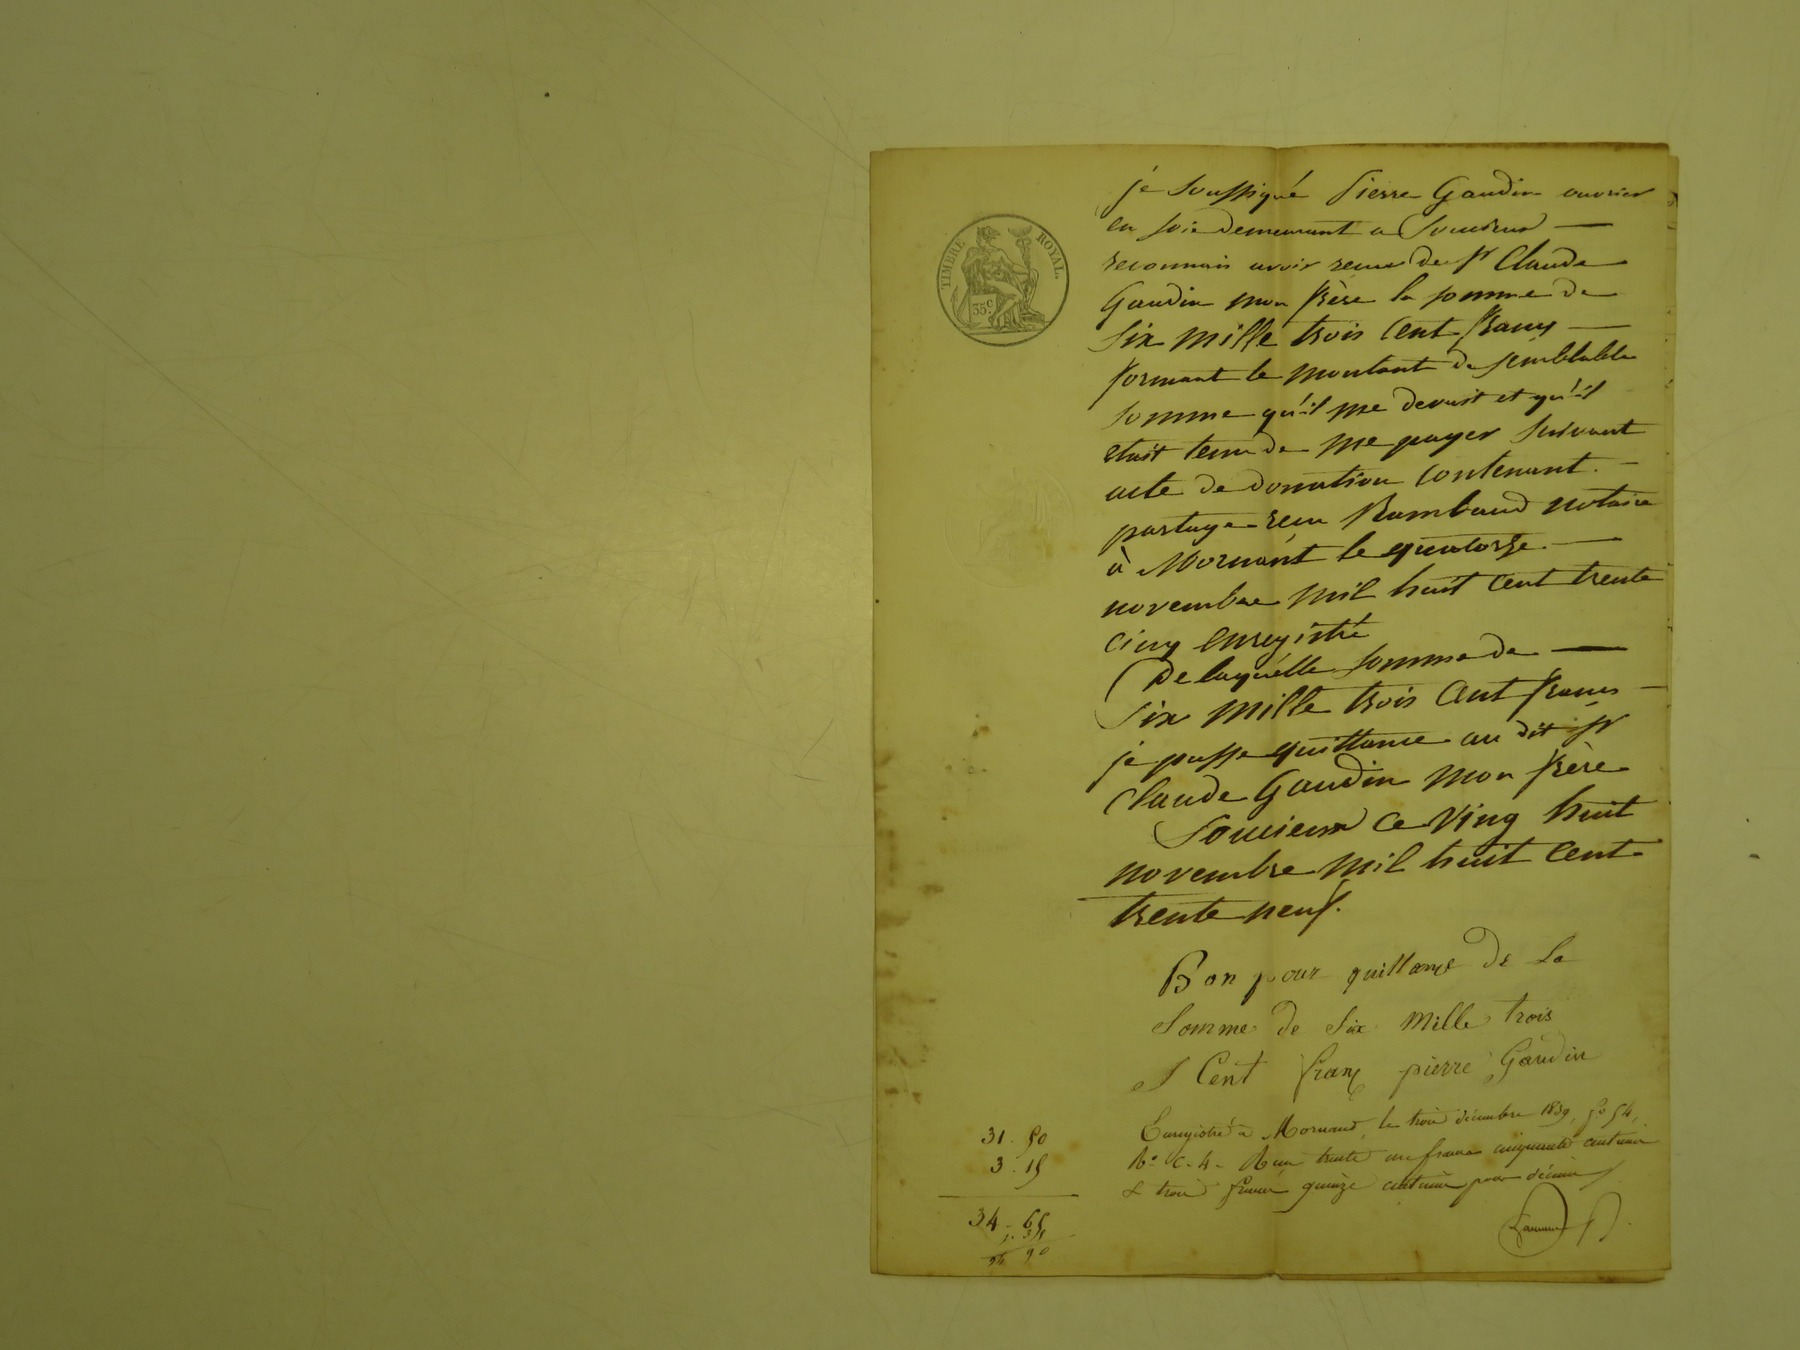 TIMBRE ROYAL.
35c.
je soussigné Pierre Gaudin ouvrier
en soie demeurant a Soucieux
reconnais avoir recue de Sr Claude
Gaudin mon frère la somme de
six mille trois cent francs
formant le montant de semblable
somme qu'il me devait et qu'il
etait tenu de me payer suivant
acte de donation contenant
partage recu Rambaud notaire
à Mornant le quatorze
novembre mil huit cent trente
cinq enregistré
De laquelle somme de
six mille trois cent francs
je passe quittance au dit Sr
Claude Gaudin mon frère
Soucieux ce ving huit
novembre mil huit cent
trente neuf.
Bon pour quittance de la
Somme de Six Mille trois
Cent franc pierre Gaudin
Enregistré à Mornant, le trois décembre 1839, fo 54,
Ro C. 4. Reçu trente un francs cinquante centimes
& trois francs quinze centimes pour décime
31 . 50
3 . 15
34 . 65